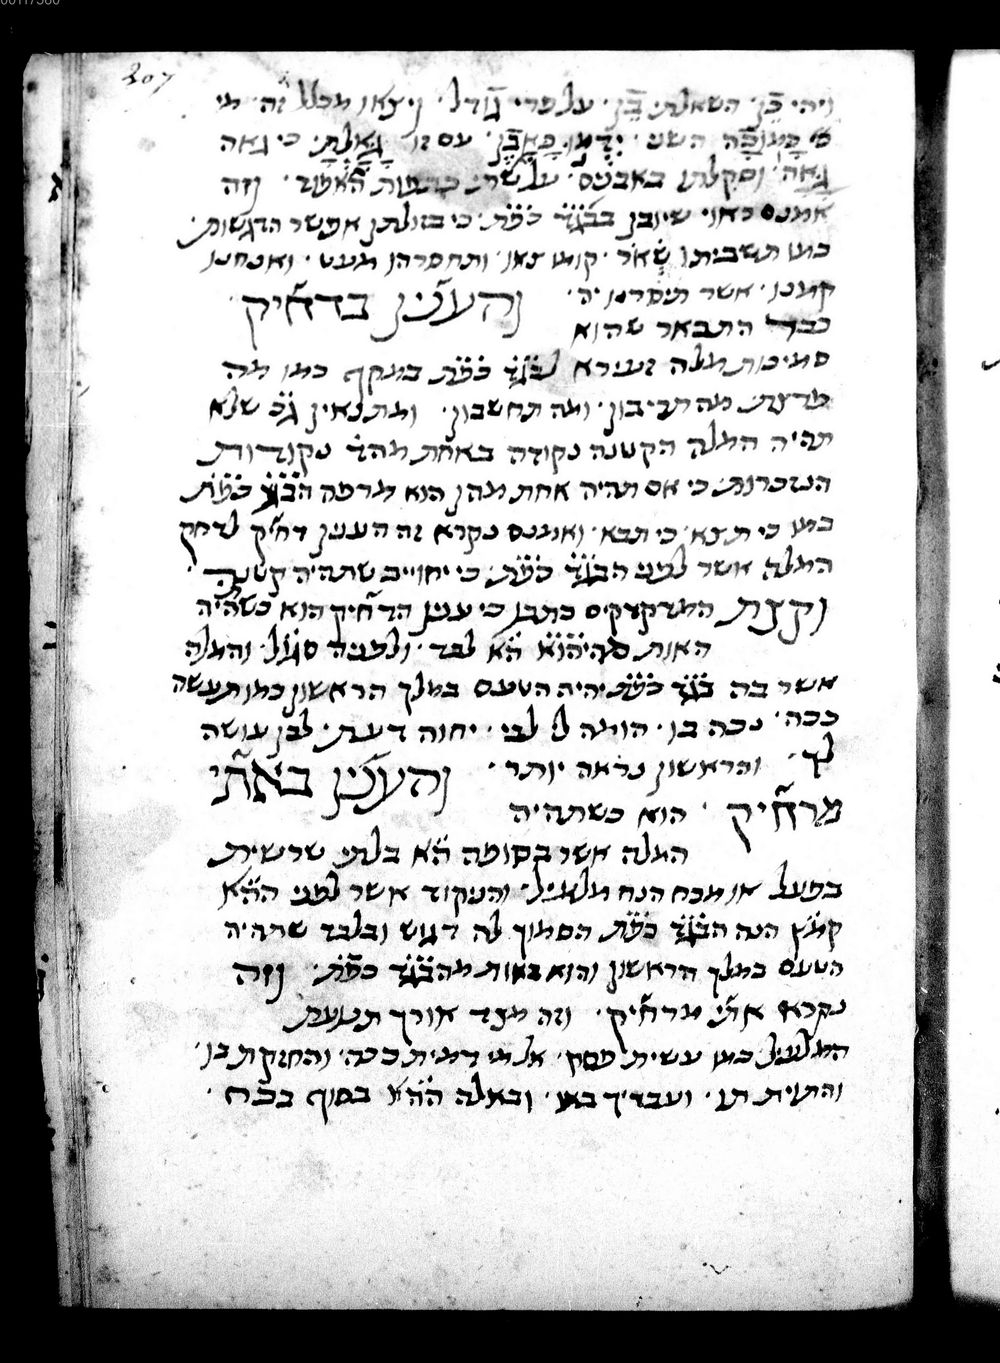 207
ויהי כן השאלתי בן על פרי גודל ויצאו מכלל זה מי
כי כמוכה השני ידמו כאבן עם זו גאלת כי גאה
גאה וסקלתו באבנים על שתי כדעות האמור וזה
אמנם ראוי שיובן בבגד כפת כי בזולתן אפשר הדגשות
כמו תשביתו שאר קומו צאו ותחסרהו מעט ואנחנו
קמנו אשר תיסרנו יה והענין בדחיק
כבר התבאר שהוא
סמיכות מלה זעירא לבגד כפת במקף כמו מה
מצאת מה תריבון ומה תחשבון ומתנאין גכ שלא
תהיה המלה הקטנה נקודה באחת מהד נקודות
הנזכרות כי אם תהיה אחת מהן הוא מרפה הבגד כפת
כמו כי תצא כי תבא ואמנם נקרא זה הענין דחיק לדחק
המלה אשר לפני הבגד כפת כי יחוייב שתהיה קטנה
וקצת המדקדקים כתבו כי ענין הדחיק הוא כשתהיה
האות מהיהוא הא לבד ולפניה סגול והמלה
אשר בה בגד כפת יהיה הטעם במלך הראשון כמו תעשה
ככה נכה בו הומה לי לבי יחוה דעת לבן עושה
לך והראשון נראה יותר והענין באתי
מרחיק הוא כשתהיה
המלה אשר בסופה הא בלתי שרשית
בפעל או מכח הנח מלעיל והניקוד אשר לפני ההא
קמץ הנה הבגד כפת הסמוך לה דגוש ובלבד שתהיה
הטעם במלך הראשון והוא באות מהבגד כפת וזה
נקרא אתי מרחיק וזה מצד אורך תנועת
המלעיל כמו עשית פסק אל מי דמית ככה והחזקת בו
והתוית תו ועבדיך באו ובאלה ההא בסוף בכח